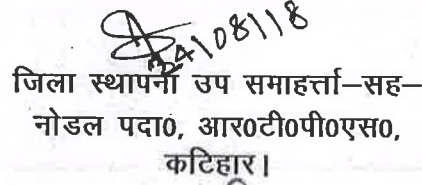 24/08/18
जिला स्थापना उप समाहर्त्ता–सह–
नोडल पदा0, आर0टी0पी0एस0,
कटिहार।